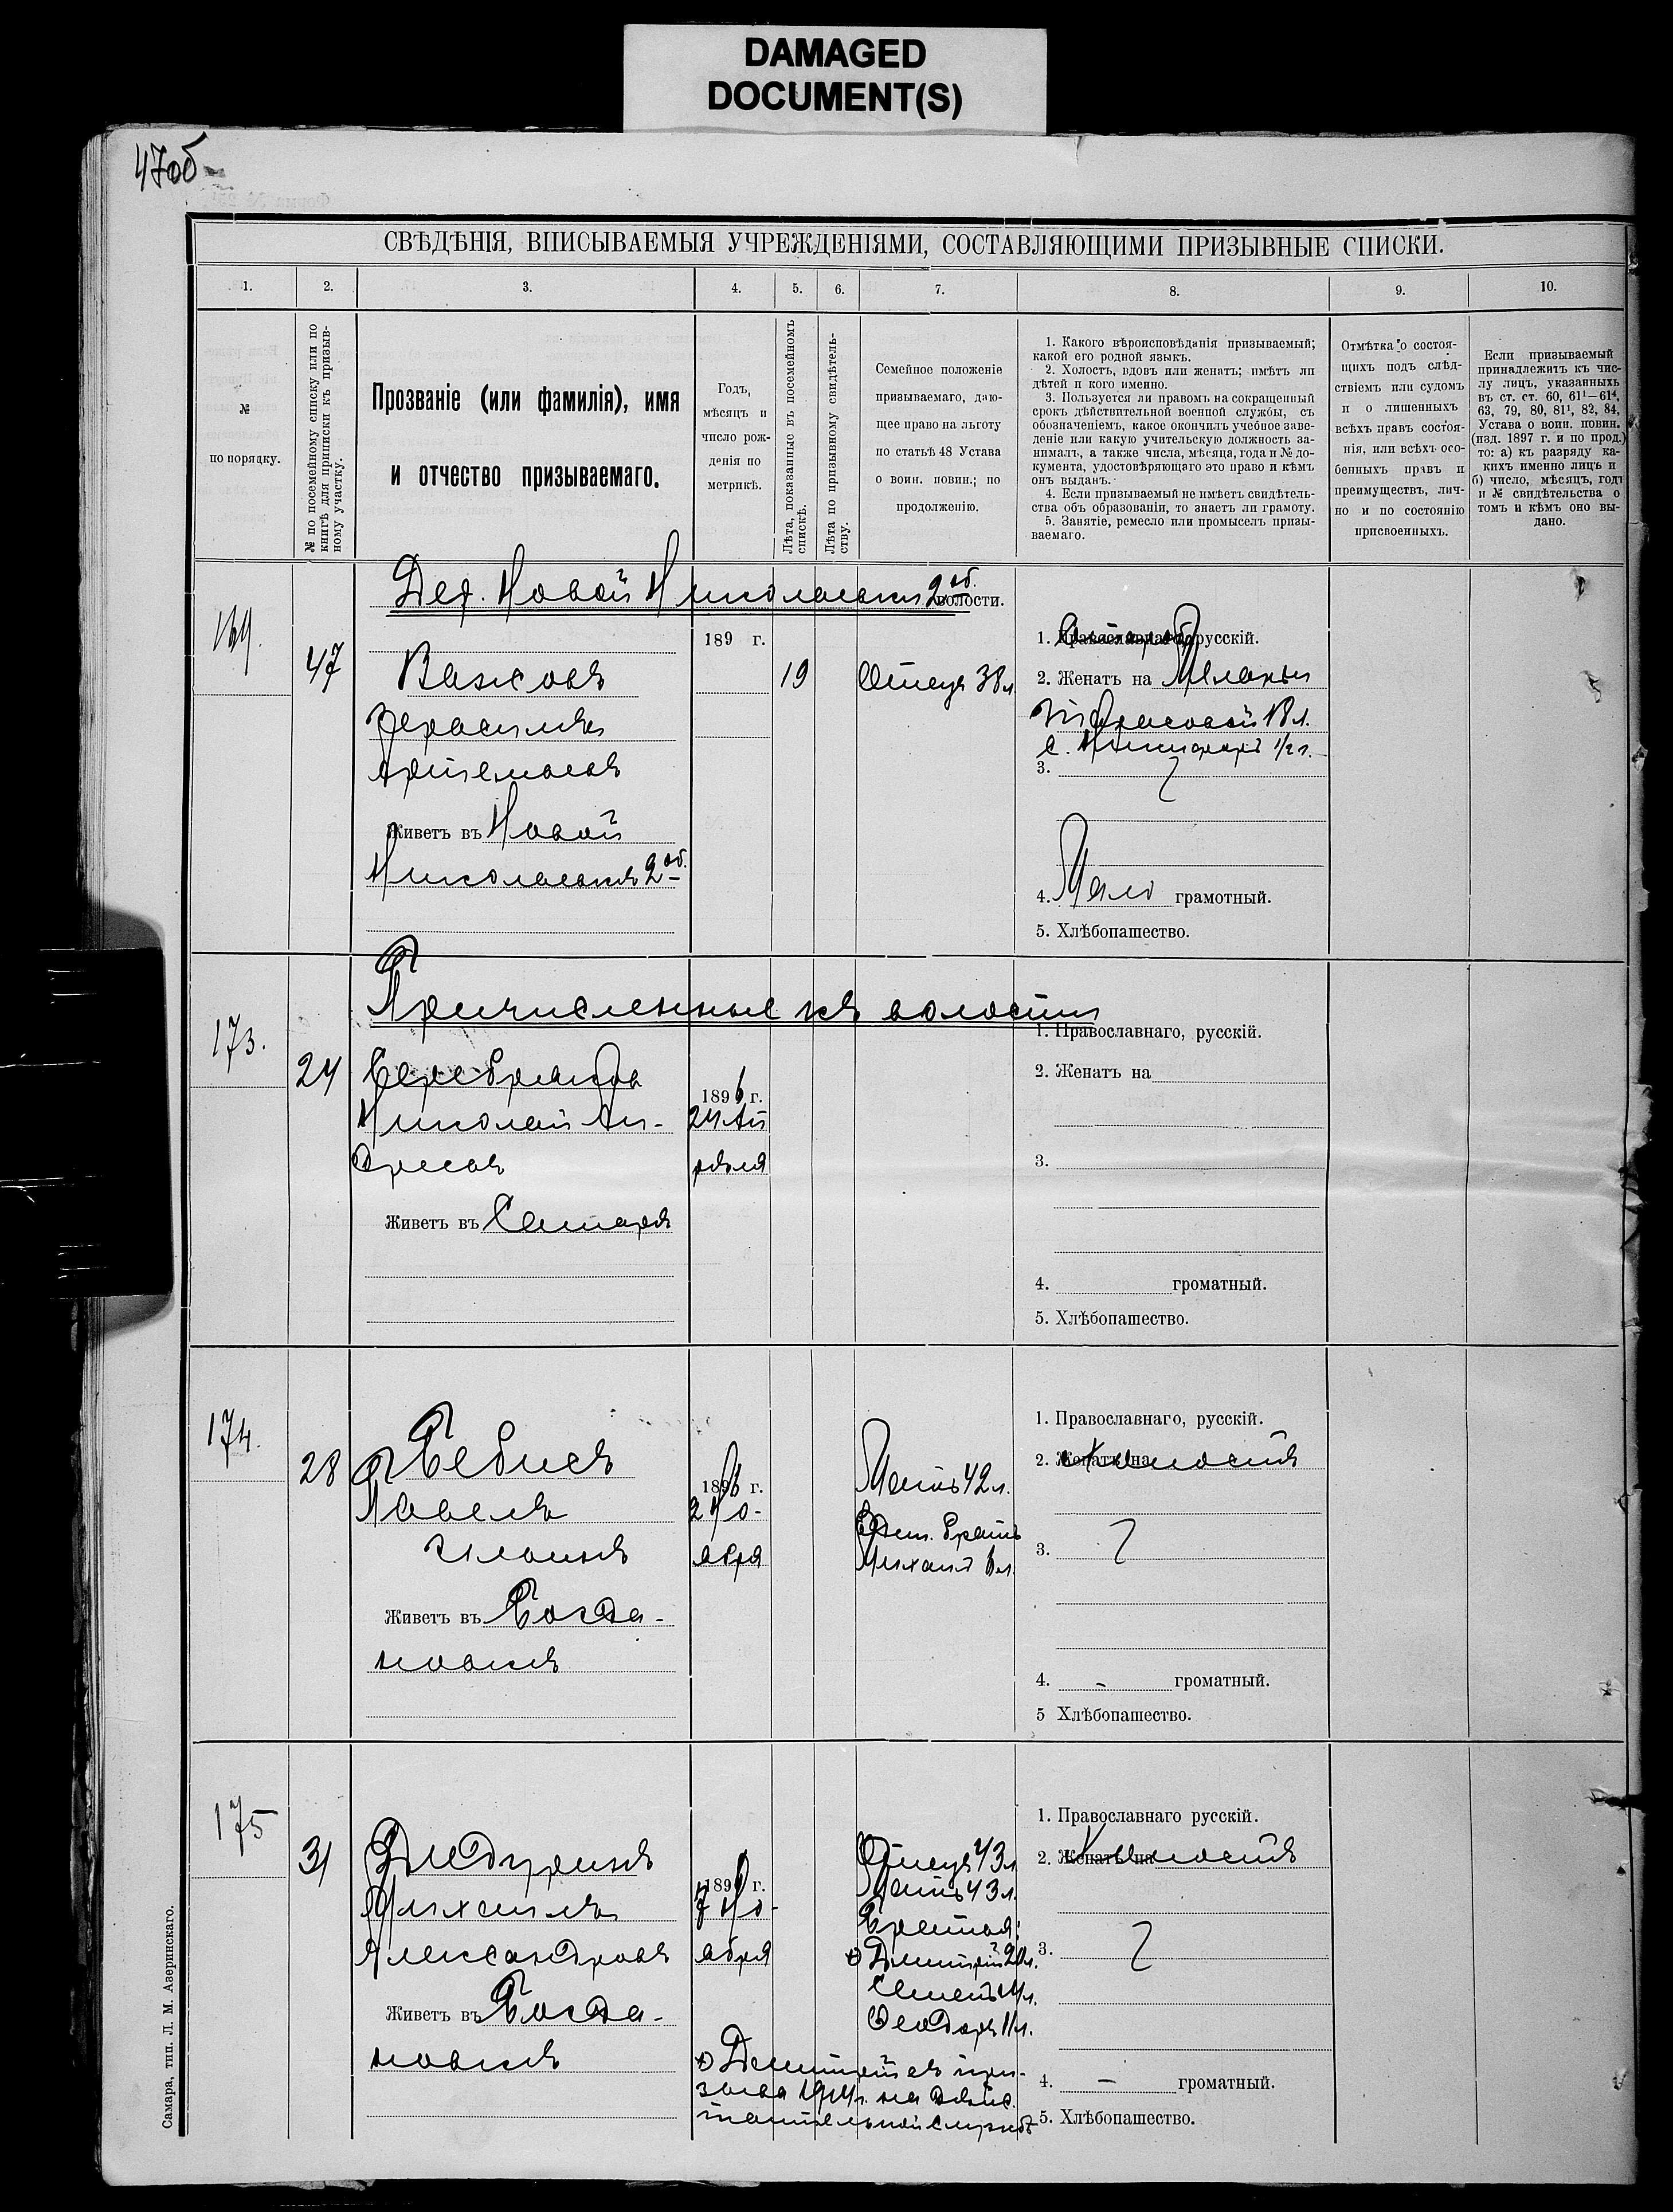 DAMAGED
DOCUMENT(S)
47об
СВѢДѢНІЯ, ВПИСЫВАЕМЫЯ УЧРЕЖДЕНІЯМИ, СОСТАВЛЯЮЩИМИ ПРИЗЫВНЫЕ СПИСКИ.
1. 2. 3. 4. 5. 6. 7. 8. 9. 10.
№
по порядку.
№ по посемейному списку или по
книгѣ для приписки къ призыв-
ному участку.
Прозваніе (или фамилія), имя
и отчество призываемаго.
Годъ,
мѣсяцъ и
число рож-
денія по
метрикѣ.
Лѣта, показанные въ посемейномъ
спискѣ.
Лѣта по призывному свидѣтель-
ству.
Семейное положеніе
призываемаго, даю-
щее право на льготу
по статьѣ 48 Устава
о воин. повин.; по
продолженію.
1. Какого вѣроисповѣданія призываемый;
какой его родной языкъ.
2. Холостъ, вдовъ или женатъ; имѣтъ ли
дѣтей и кого именно.
3. Пользуется ли правомъ на сокращенный
срокъ дѣйствительной военной службы, съ
обозначеніемъ, какое окончилъ учебное заве-
деніе или какую учительскую должность за-
нималъ, а также числа, мѣсяца, года и № до-
кумента, удостовѣряющаго это право и кѣмъ
онъ выданъ.
4. Если призываемый не имѣетъ свидѣтель-
ства объ образованіи, то знаетъ ли грамоту.
5. Занятіе, ремесло или промыселъ призы-
ваемаго.
Отмѣтка о состоя-
щихъ подъ слѣд-
ствіемъ или судомъ
и о лишенныхъ
всѣхъ правъ состоя-
нія, или всѣхъ осо-
бенныхъ правъ и
преимуществъ, лич-
но и по состоянію
присвоенныхъ.
Если призываемый
принадлежитъ къ чис-
лу лицъ, указанныхъ
въ ст. ст. 60, 61¹—61⁴,
63, 79, 80, 81¹, 82, 84,
Устава о воин. повин.
(изд. 1897 г. и по прод.)
то: а) къ разряду ка-
кихъ именно лицъ и
б) число, мѣсяцъ, годъ
и № свидѣтельства о
томъ и кѣмъ оно вы-
дано.
Дер. Новой Никольски 2об. волости.
169.
47
189 г.
19
Отецъ 38 л.
Герасимъ
Артемьевъ
Живетъ въ Новой
Никольскѣ 2об.
1. Православнаго, русскій.
2. Женатъ на Меланьи
18 л.
с. Никифоръ ½ г.
3.
4. Мало грамотный.
5. Хлѣбопашество.
Причисленные къ волости
173.
24
Серебряковъ
Николай Ан-
дреевъ
1896 г.
24 Ап
рѣля
Живетъ въ Самарѣ
1. Православнаго, русскій.
2. Женатъ на
3.
4. громатный.
5. Хлѣбопашество.
174.
28
Бабаевъ
Павелъ
1896 г.
2 Но-
ября
Мать 42 л.
братъ
Михаилъ 6 л.
Живетъ въ Богда-
новкѣ
1. Православнаго, русскій.
2. Женатъ на Холостъ
3.
4. - громатный.
5 Хлѣбопашество.
175
31
Михаилъ
Александровъ
1896 г.
7 Но-
ября
Отецъ 43 л.
Мать 43 л.
Братья:
х) Дмитрій 20 л.
Семенъ 14 л.
Ѳеодоръ 11 л.
Живетъ въ Богда-
новкѣ
х) Дмитрій съ при-
зыва 1914 г. на дѣйс.
твительной службѣ
1. Православнаго русскій.
2. Женатъ на Холостъ
3.
4. — громатный.
5. Хлѣбопашество.
Самара, тип. Л. М. Азеринскаго.